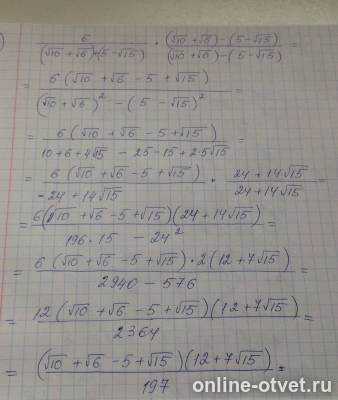 )
6/((√10 + √6) + (5 - √15)) · ((√10 + √6) - (5 - √15))/((√10 + √6) - (5 - √15)) =
= 6(√10 + √6 - 5 + √15)/((√10 + √6)² - (5 - √15)²) =
= 6(√10 + √6 - 5 + √15)/(10 + 6 + 4√15 - 25 - 15 + 2·5√15) =
= 6(√10 + √6 - 5 + √15)/(-24 + 14√15) · (24 + 14√15)/(24 + 14√15) =
= 6(√10 + √6 - 5 + √15)(24 + 14√15)/(196·15 - 24²) =
= 6(√10 + √6 - 5 + √15)·2(12 + 7√15)/(2940 - 576) =
= 12(√10 + √6 - 5 + √15)(12 + 7√15)/2364 =
= (√10 + √6 - 5 + √15)(12 + 7√15)/197 =
online-otvet.ru